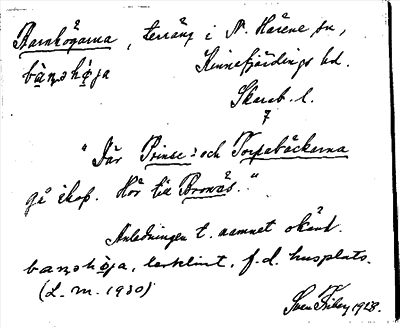 Barnhögarna, terräng i N. Härene sn,
ba̤ṇshö̤ja Kinnefjärdings hd.
Skarab. l.
7
"Där Prinse- och Torpabäckarna
gå ihop. Hör till Bronäs."
Anledningen t. namnet okänd.
baṇshö̤ja, lerklint, f.d. husplats.
(L. m. 1930)
Sven Friberg 1928.